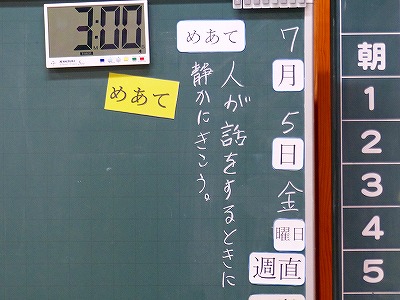 3:00
めあて
めあて
7月5日金曜日
週直
人が話をするときに
静かにきこう。
朝
1
2
3
4
5